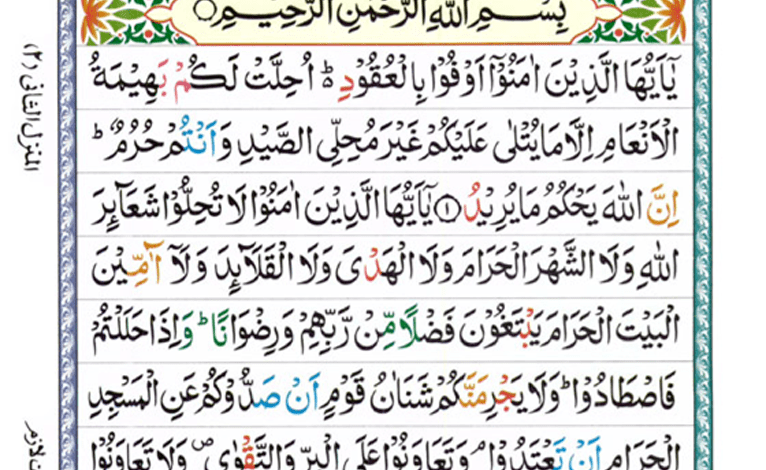 بِسْمِ اللهِ الرَّحْمٰنِ الرَّحِيْمِ
يٰۤاَيُّهَا الَّذِيْنَ اٰمَنُوْۤا اَوْفُوْا بِالْعُقُوْدِ ؕ اُحِلَّتْ لَكُمْ بَهِيْمَةُ
الْاَنْعَامِ اِلَّا مَا يُتْلٰى عَلَيْكُمْ غَيْرَ مُحِلِّى الصَّيْدِ وَاَنْتُمْ حُرُمٌ ؕ
اِنَّ اللهَ يَحْكُمُ مَا يُرِيْدُ ۝۱ يٰۤاَيُّهَا الَّذِيْنَ اٰمَنُوْا لَا تُحِلُّوْا شَعَآئِرَ
اللهِ وَلَا الشَّهْرَ الْحَرَامَ وَلَا الْهَدْىَ وَلَا الْقَلَآئِدَ وَلَاۤ آٰمِّيْنَ
الْبَيْتَ الْحَرَامَ يَبْتَغُوْنَ فَضْلًا مِّنْ رَّبِّهِمْ وَرِضْوَانًا ؕ وَاِذَا حَلَلْتُمْ
فَاصْطَادُوْا ؕ وَلَا يَجْرِمَنَّكُمْ شَنَاٰنُ قَوْمٍ اَنْ صَدُّوْكُمْ عَنِ الْمَسْجِدِ
الْحَرَامِ اَنْ تَعْتَدُوْا ۘ وَتَعَاوَنُوْا عَلَى الْبِرِّ وَالتَّقْوٰى ۪ وَلَا تَعَاوَنُوْا
المنزل الثانى (۲)